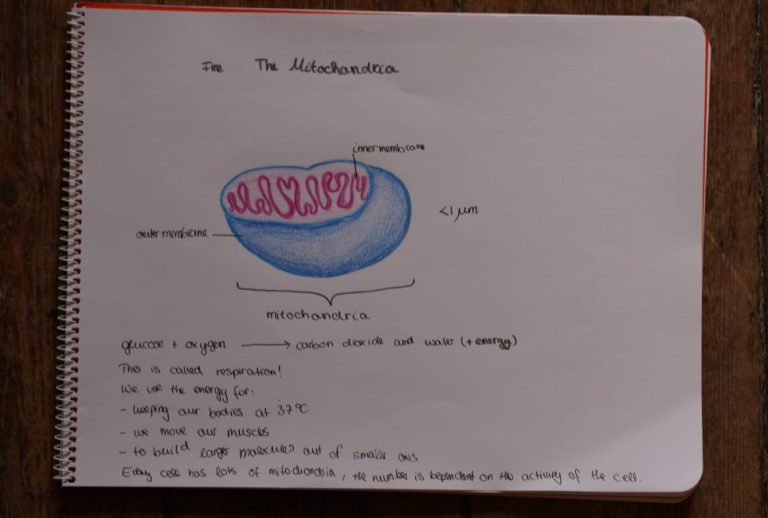 Fire The Mitochondria
inner membrane
<1 μm
outer membrane
mitochondria
glucose + oxygen ⟶ carbon dioxide and water (+ energy)
This is called respiration!
We use the energy for:
- keeping our bodies at 37°C
- we move our muscles
- to build larger molecules out of smaller ones
Every cell has lots of mitochondria, the number is dependant on the activity of the cell.